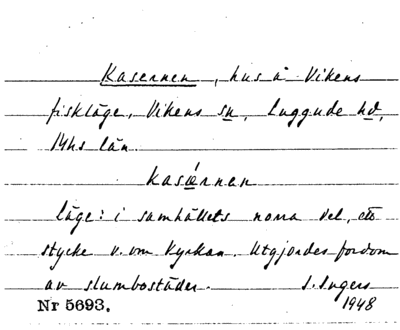 Kasernen, hus å Vikens
fiskläge, Vikens sn, Luggude hd,
Mhs län.
kasǽrnan
läge: i samhällets norra del, ett
stycke v. om kyrkan. Utgjordes fordom
av slumbostäder. S. Ingers
Nr 5693. 1948